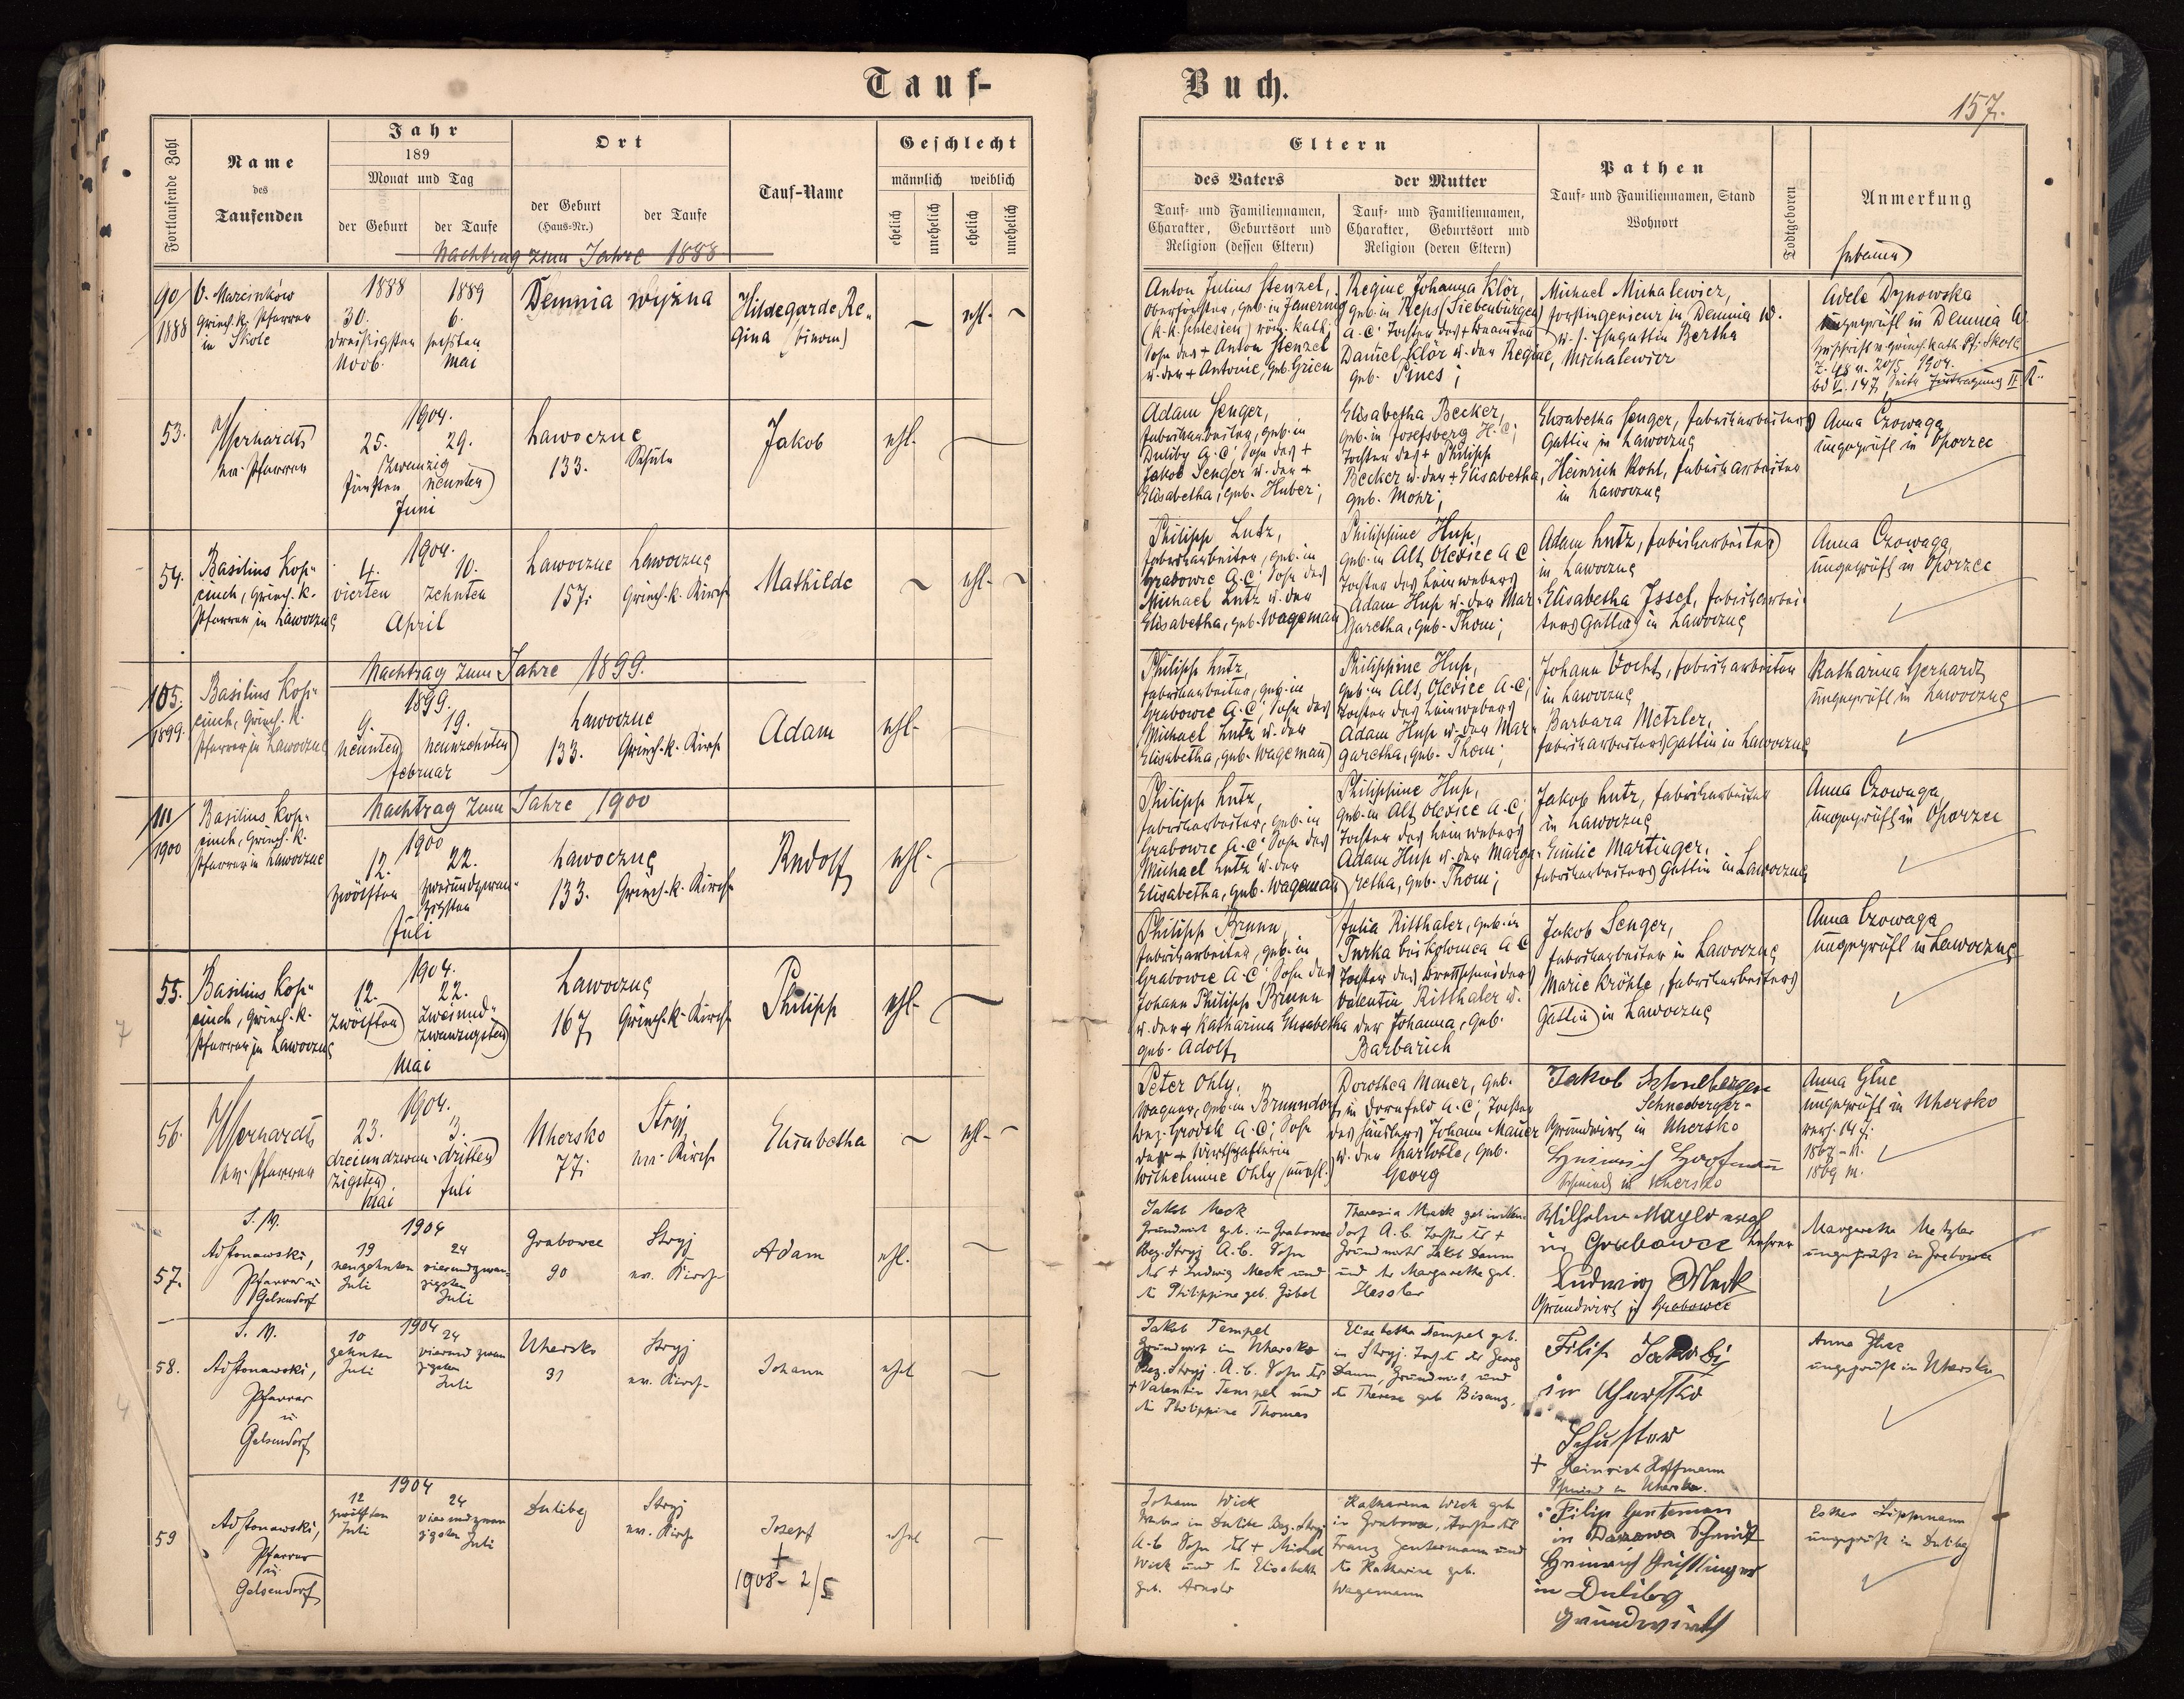 Tauf-
Buch.
157.
Fortlaufende Zahl
Name
des
Taufenden
Jahr
189
Monat und Tag
der Geburt
der Taufe
Ort
der Geburt
(Haus-Nr.)
der Taufe
Tauf-Name
Geschlecht
männlich
weiblich
ehelich
unehelich
ehelich
unehelich
Eltern
des Vaters
der Mutter
Tauf- und Familiennamen,
Charakter, Geburtsort und
Religion (dessen Eltern)
Tauf- und Familiennamen,
Charakter, Geburtsort und
Religion (deren Eltern)
Pathen
Tauf- und Familiennamen, Stand
Wohnort
Todtgeboren
Anmerkung
Hebamme
Nachtrag zum Jahre 1888
90/
1888
V. Marcinków
griech. k. Pfarrer
in Skole
1888
30.
dreißigsten
Novb.
1889
6.
sechsten
Mai
Demnia wyżna
Hildegarde Re-
gina
ehl.
Anton Julius Stenzel,
Oberförster, geb. in Jauernig
(k. k. Schlesien) röm. kath.
Sohn des + Anton Stenzel
u. der + Antonie, geb. Grien
Regine Johanna Klör,
geb. in Reps (Siebenbürgen)
A. C. Tochter des + Beamten
Daniel Klör u. der Regine,
geb. Pines;
Michael Michalewicz,
Forstingenieur in Demnia w.
u. s. Ehegattin Bertha
Michalewicz
Adele Dynowska
ungeprüft in Demnia w.
Z. 48 v. 20/5 1904.
53.
Gerhardt
ev. Pfarrer
1904.
25. 29.
zwanzig
fünften neunten
Juni
Lawoczne
133. Schule
Jakob
ehl.
Adam Senger,
Fabriksarbeiter, geb. in
Duliby A. C; Sohn des +
Jakob Senger u. der +
Elisabetha, geb. Huber;
Elisabetha Becker,
geb. in Josefsberg H. C;
Tochter des + Philipp
Becker u. der + Elisabetha,
geb. Mohr;
Elisabetha Senger, Fabriksarbeiters
Gattin in Lawoczne
Heinrich Kohl, Fabriksarbeiter
in Lawoczne
Anna Czowaga
ungeprüft in Oporzec
54.
Basilius Kop-
ciuch, griech. k.
Pfarrer in Lawoczne
1904.
4. 10.
vierten zehnten
April
Lawoczne
157.
Lawoczne
griech. k. Kirche
Mathilde
ehl.
Philipp Lutz,
Fabriksarbeiter, geb. in
Grabowce A. C; Sohn des
Michael Lutz u. der
Elisabetha, geb. Wageman
Philippine Hup,
geb. in Alt Olexice A C
Tochter des Leinwebers
Adam Hup u. der Mar-
garetha, geb. Thom;
Adam Lutz, Fabriksarbeiter
in Lawoczne
Elisabetha Issel, Fabriksarbei-
ters Gattin in Lawoczne
Anna Czowaga,
ungeprüft in Oporzec
Nachtrag zum Jahre 1899.
105./
1899.
Basilius Kop-
ciuch, griech. k.
Pfarrer in Lawoczne
1899.
9. 19.
neunten neunzehnten
Februar
Lawoczne
133. griech. k. Kirche
Adam
ehl.
Philipp Lutz,
Fabriksarbeiter, geb. in
Grabowce A. C; Sohn des
Michael Lutz u. der
Elisabetha, geb. Wageman
Philippine Hup,
geb. in Alt Olexice A. C;
Tochter des Leinwebers
Adam Hup u. der Mar-
garetha, geb. Thom;
Johann Vocht, Fabriksarbeiter
in Lawoczne
Barbara Metzler,
Fabriksarbeiters Gattin in Lawoczne
Katharina Gerhardt
ungeprüft in Lawoczne
Nachtrag zum Jahre 1900
111/
1900
Basilius Kop-
ciuch, griech. k.
Pfarrer in Lawoczne
1900
12. 22.
zwölften zweiundzwan-
zigsten
Juli
Lawoczne
133. griech. k. Kirche
Rudolf
ehl.
Philipp Lutz,
Fabriksarbeiter, geb. in
Grabowce A. C; Sohn des
Michael Lutz u. der
Elisabetha, geb. Wageman
Philippine Hup,
geb. in Alt Olexice A. C;
Tochter des Leinwebers
Adam Hup u. der Marga-
retha, geb. Thom;
Jakob Lutz, Fabriksarbeiter
in Lawoczne
Emilie Martinger,
Fabriksarbeiters Gattin in Lawoczne
Anna Czowaga,
ungeprüft in Oporzec
55.
Basilius Kop-
ciuch, griech. k.
Pfarrer in Lawoczne
1904.
12. 22.
zwölften zweiund-
zwanzigsten
Mai
Lawoczne
167 griech. k. Kirche
Philipp
ehl.
Philipp Brunn,
Fabriksarbeiter, geb. in
Grabowce A. C; Sohn des
Johann Philipp Brunn
u. der + Katharina Elisabetha
geb. Adolf
Julia Ritthaler, geb. in
Turka bei Kolomea A C
Tochter des Brettschneiders
Valentin Ritthaler u.
der Johanna, geb.
Barbarich
Jakob Senger,
Fabriksarbeiter in Lawoczne
Marie Kröhle, Fabriksarbeiters
Gattin in Lawoczne
Anna Czowaga
ungeprüft in Lawoczne
56.
Gerhardt
ev. Pfarrer
1904.
23. 3.
dreiundzwan- dritten
zigsten
Mai Juli
Uhersko
77.
Stryj
ev. Kirche
Elisabetha
ehl.
Peter Ohly,
Wagner, geb. in Brunndorf
Bez. Grodek A. C; Sohn
der + Wirtschafterin
Wilhelmine Ohly (unehl.)
Dorothea Mauer, geb.
in Dornfeld A. C; Tochter
des Häuslers Johann Mauer
u. der Charlotte, geb.
Georg
Jakob Schneberger
Schneeberger
Grundwirt in Uhersko
Heinrich Hoofmann
Schmied in Uhersko
Anna Gluc
ungeprüft in Uhersko
57.
J. W.
Adstonawski,
Pfarrer in
Gelsendorf
1904
19 24
neunzehnten vierundzwan-
zigsten
Juli Juli
Grabowce
90
Stryj
ev. Kirche
Adam
ehl.
Jakob Meck
Grundwirt geb. in Grabowce
Bez. Stryj A. C. Sohn
des + Ludwig Meck und
der Philippine geb. Göbel
Theresia Meck geb
dorf A. C. Tochter des +
Grundwirts Jakob Daum
und der Margarethe geb.
Hessler
in Grabowce Lehrer
Ludwig Meck
Grundwirt in Grabowce
Margaretha Metzler
ungeprüft in Grabowce
58.
J. W.
Adstonawski,
Pfarrer
in
Gelsendorf
1904
10 24
zehnten vierundzwan-
zigsten
Juli Juli
Uhersko
31
Stryj
ev. Kirche
Johann
ehel
Jakob Tempel
Grundwirt in Uhersko
Bez. Stryj. A. C. Sohn des
+ Valentin Tempel und
der Philippine Thomas
Elisabetha Tempel geb.
in Stryj. Tocht. des Georg
Daum, Grundwirt, und
der Therese geb Bisanz.
Filip Jakobi
in Uhersko
Schuster
+ Heinrich Hoffmann
Schmied in Uhersko.
Anna Gluc
ungeprüft in Uhersko
59
Adstonawski,
Pfarrer
in
Gelsendorf
1904
12 24
zwölften vierundzwan-
zigsten
Juli Juli
Duliby
Stryj
ev. Kirche
Josef
+
1908- 2/5
ehel
Johann Wick
in Duliby Bez. Stryj
A. C. Sohn des + Michael
Wick und der Elisabeth
geb. Arnold
Katharina Wick geb
in Grabowce, Tochter des
Franz Gentermann und
der Katharine geb.
Wagemann
Filip Genteman
in Daszawa Schmidt
in Duliby
Grundwirth
Esther Lippmann
ungeprüft in Duliby